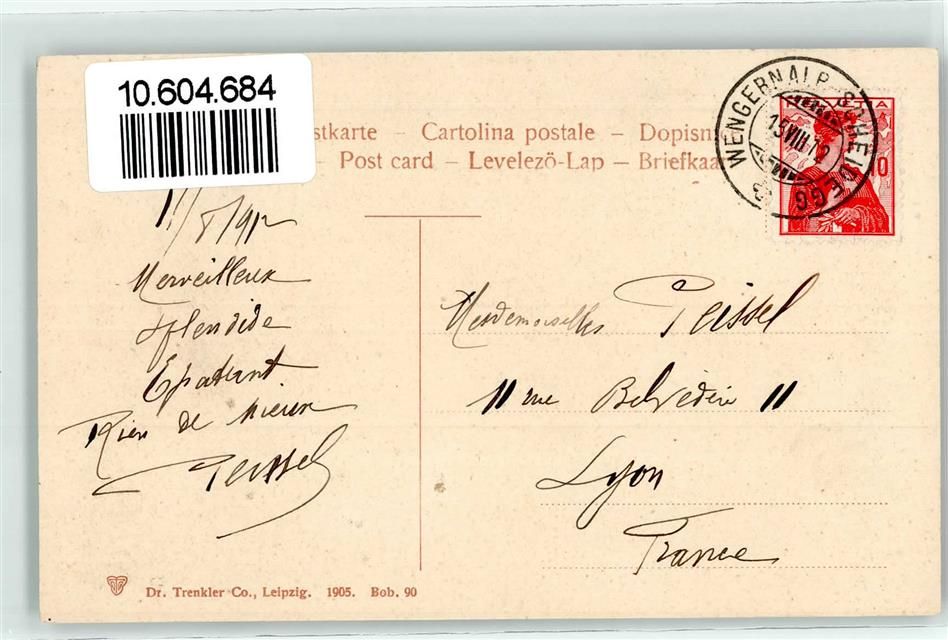 10.604.684
stkarte – Cartolina postale – Dopisni
Post card – Levelező-Lap – Briefkaa
WENGERNALP SCHEIDEGG
15 VIII 12
10
/8/912
Merveilleux
Splendide
Epatant
Rien de mieux
Teissel
Mesdemoiselles Teissel
11 rue Belvédère 11
Lyon
France
Dr. Trenkler Co., Leipzig. 1905. Bob. 90